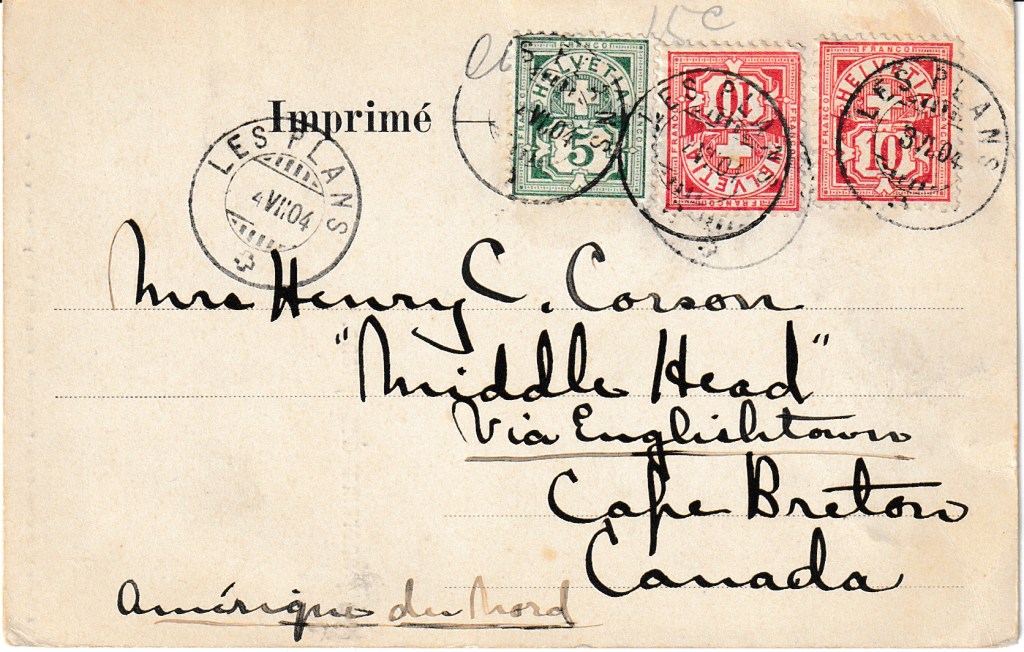 15c
Imprimé
FRANCO
HELVETIA
5
FRANCO
HELVETIA
10
FRANCO
HELVETIA
10
LES PLANS
LES PLANS
LES PLANS
LES PLANS
4 VI 04
Mrs Henry C. Corson
"Middle Head"
Via Englishtown
Cape Breton
Canada
Amérique du Nord